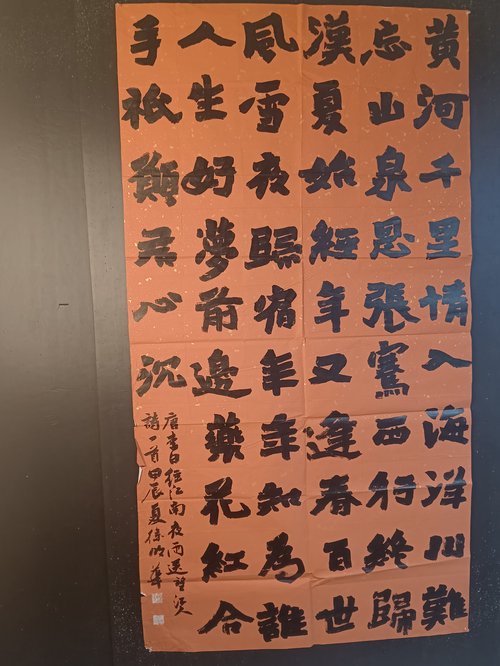 黄河千里情入海洋川難
忘山泉恩張騫西行終歸
漢夏始經年又逢春百世
風雪夜歸宿年年知為誰
人生好夢前邊藥花紅合
手祇願君心沉
唐李白江南夜雨
詩一首甲辰夏徐華